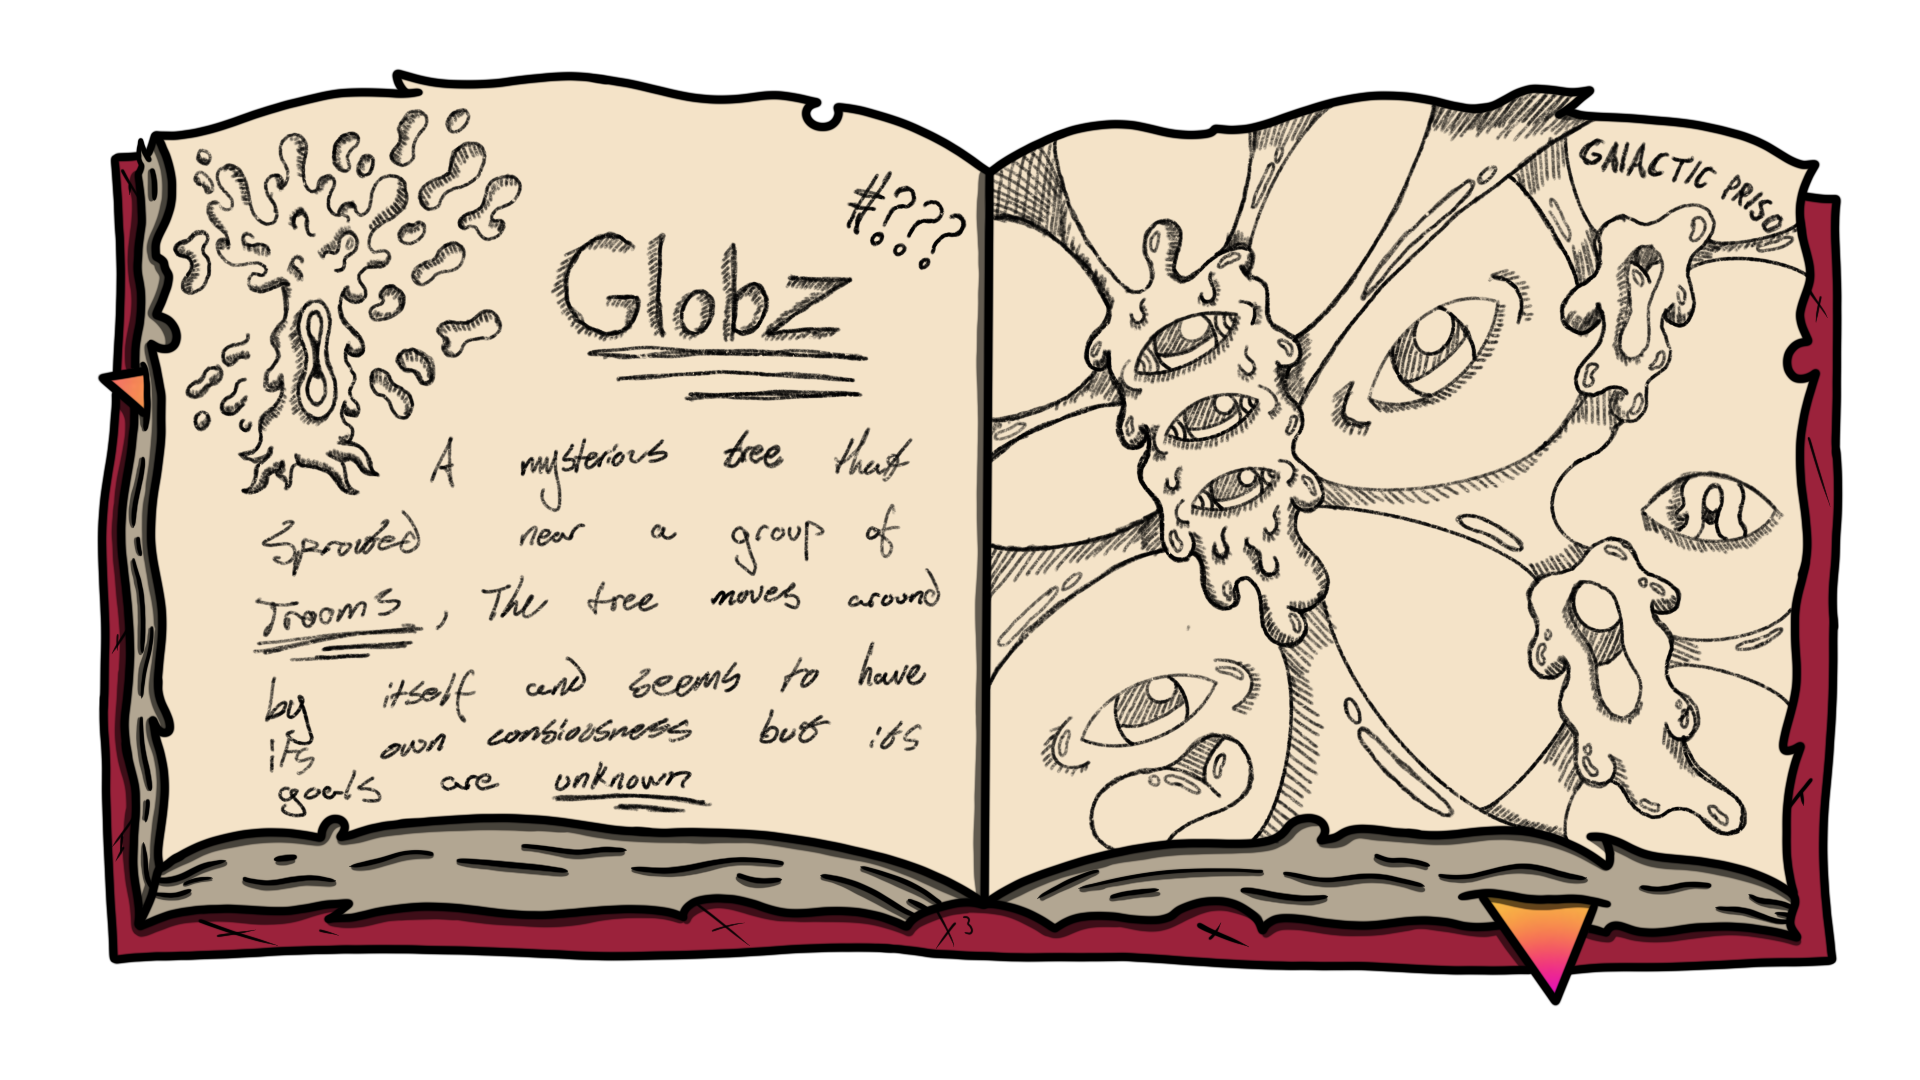 #???
Globz
A mysterious tree that
Sprouted near a group of
Trooms, The tree moves around
by itself and seems to have
its own consiousness but its
goals are unknown
GAlACTIC PRISON
3